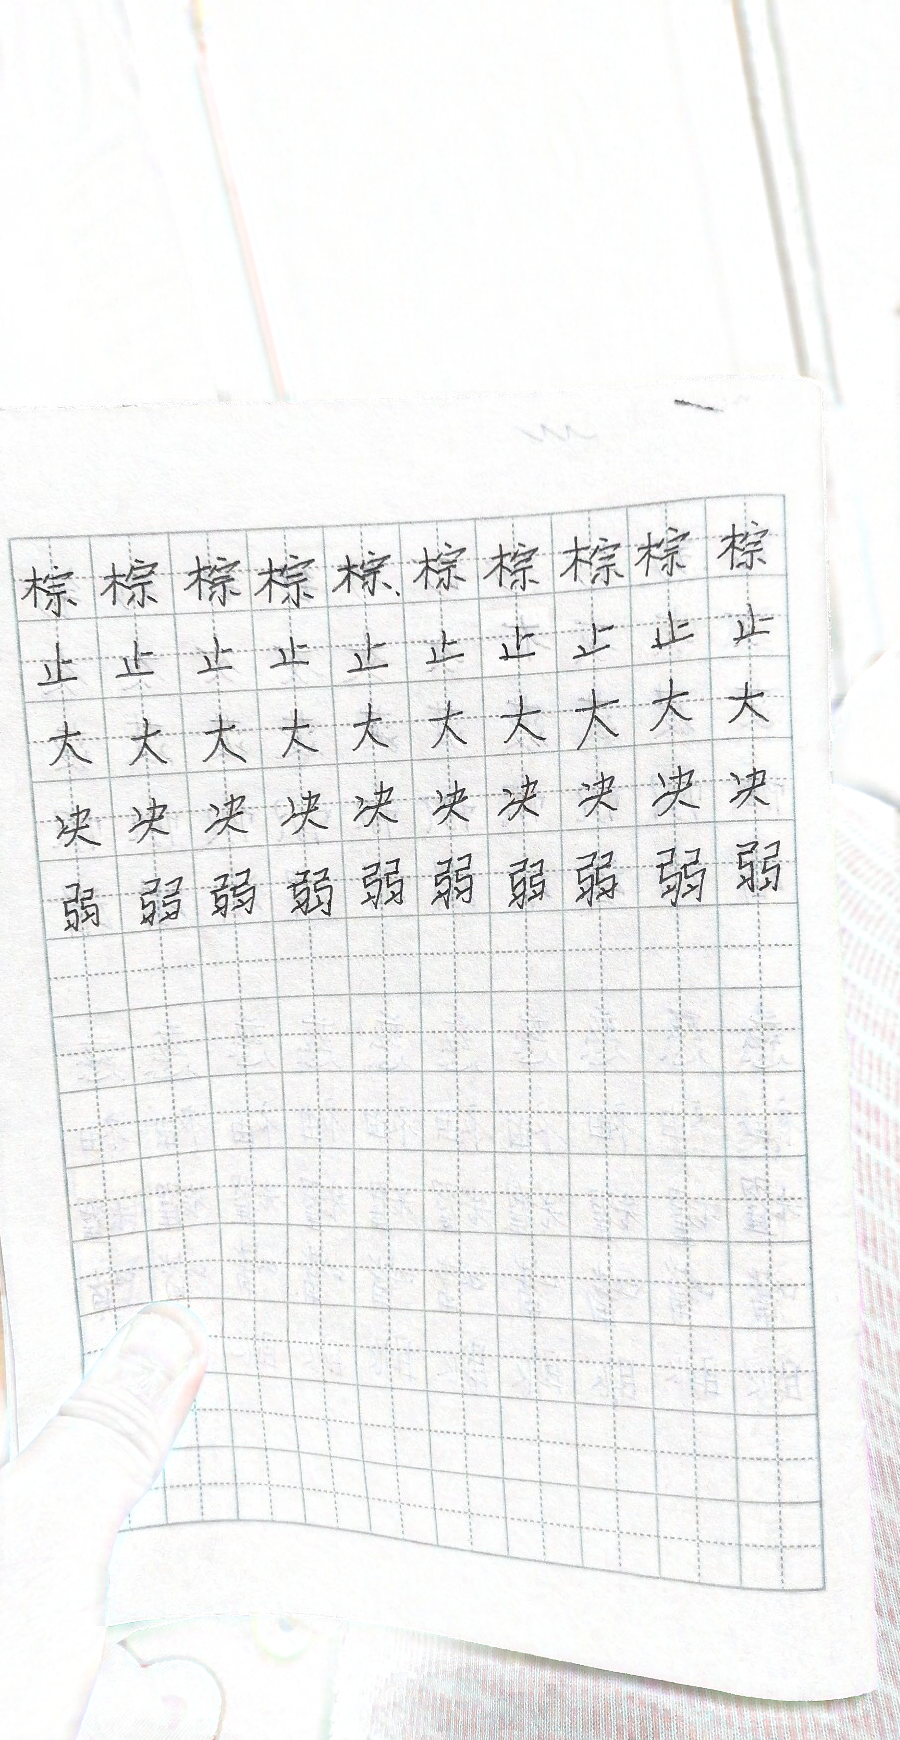 棕棕棕棕棕棕棕棕棕棕
止止止止止止止止止止
大大大大大大大大大大
决决决决决决决决决决
弱弱弱弱弱弱弱弱弱弱